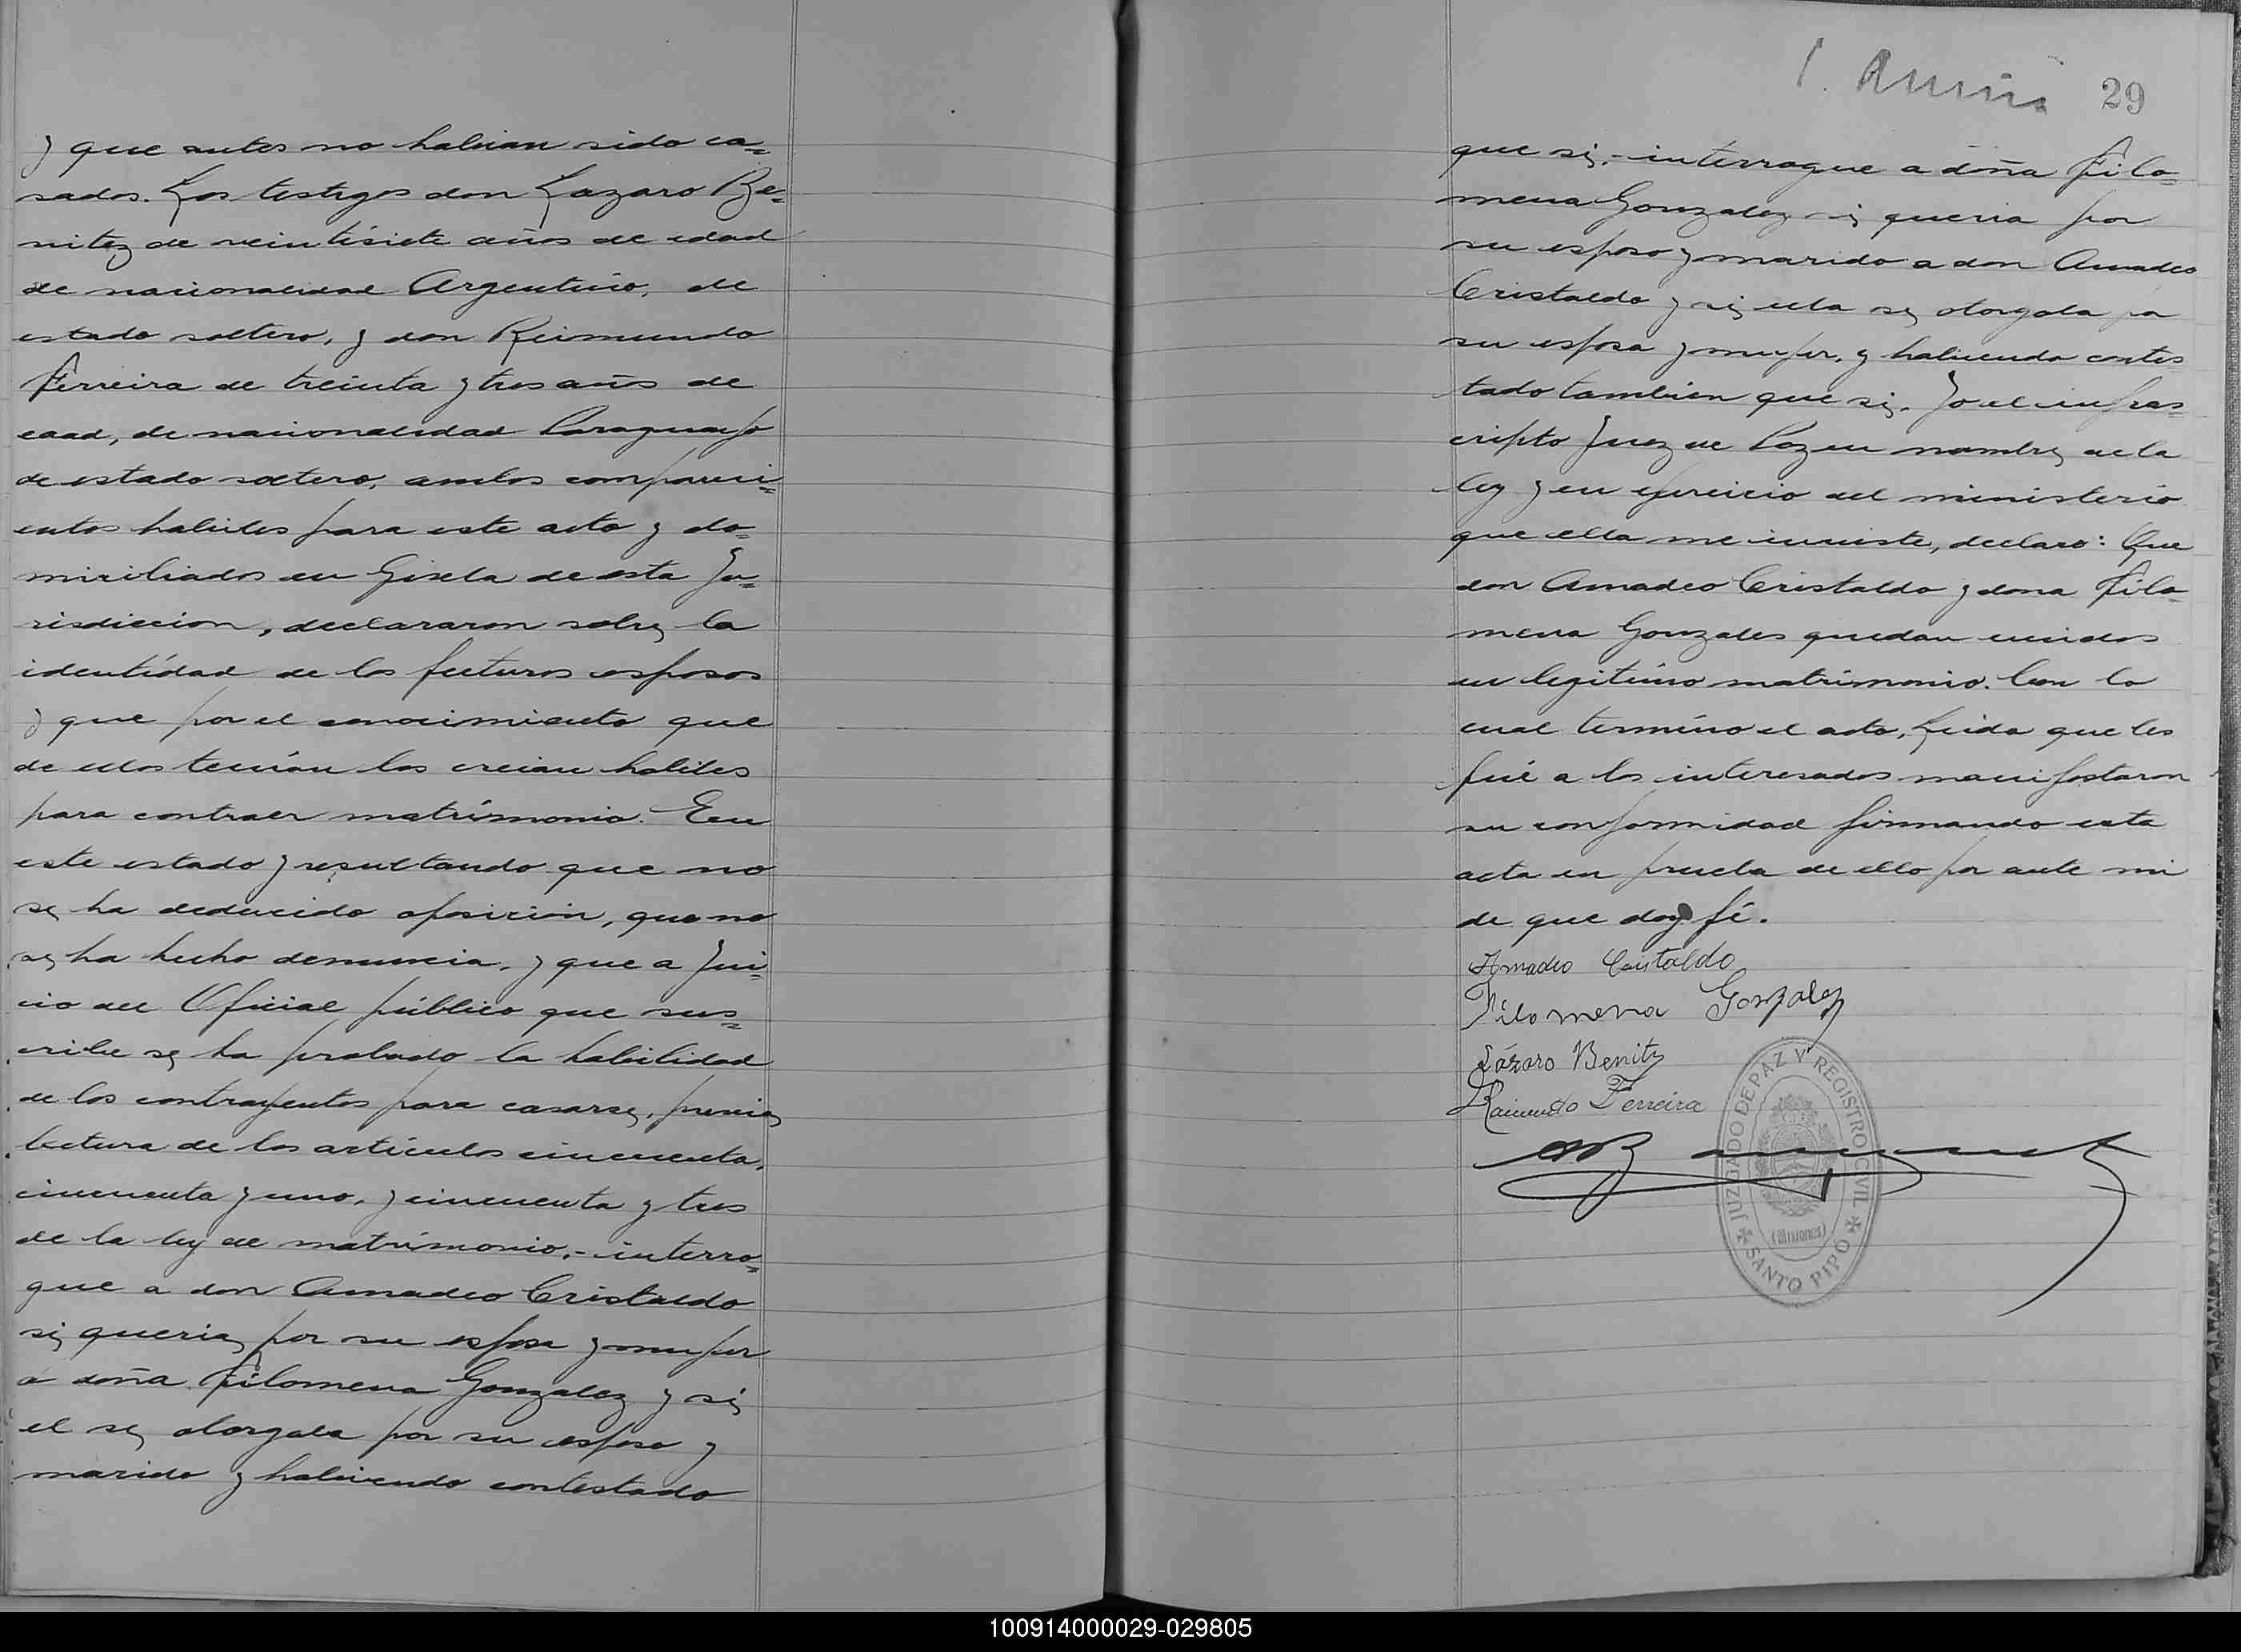 y que antes no habian sido ca=
sados. Los testigos don Lazaro Be=
nitez de veintisiete años de edad
de nacionalidad Argentino, de
estado soltero, y don Reimundo
Ferreira de treinta y tres años de
edad, de nacionalidad Paraguayo
de estado soltero, ambos compareci=
entes habiles para este acto y do=
miciliados en Gisela de esta Ju=
risdiccion, declararon sobre la
identidad de los futuros esposos
y que por el conocimiento que
de ellos tenian los creian habiles
para contraer matrimonio. En
este estado y resultando que no
se ha deducido oposición, que no
se ha hecho denuncia, y que a Jui=
cio del Oficial público que sus=
cribe se ha probado la habilidad
de los contrayentes para casarse, previa
lectura de los articulos cincuenta,
cincuenta y uno, y cincuenta y tres
de la ley de matrimonio,- interro=
gue a don Amadeo Cristaldo
si queria por su esposa y mujer
a doña Filomena Gonzalez y si
el se otorgaba por su esposo y
marido y habiendo contestado
29
que si,- interrogue a doña Filo=
mena Gonzalez si queria por
su esposo y marido a don Amadeo
Cristaldo y si ella se otorgaba pa
su esposa y mujer, y habiendo contes
tado tambien que si. Yo el infras=
cripto Juez de Paz en nombre de la
ley y en ejercicio del ministerio
que ella me inviste, declaro: Que
don Amadeo Cristaldo y dona Filo=
mena Gonzales quedan unidos
en legitimo matrimonio. Con lo
cual termino el acto, Leida que les
fué a los interesados manifestaron
su conformidad firmando esta
acta en prueba de ello por ante mi
de que doy fé.
Amadeo Cristaldo
Filomena Gonzalez
Lázaro Benitz
Raimundo Ferreira
JUZGADO DE PAZ Y REGISTRO CIVIL
(Misiones)
SANTO PIPO
100914000029-029805